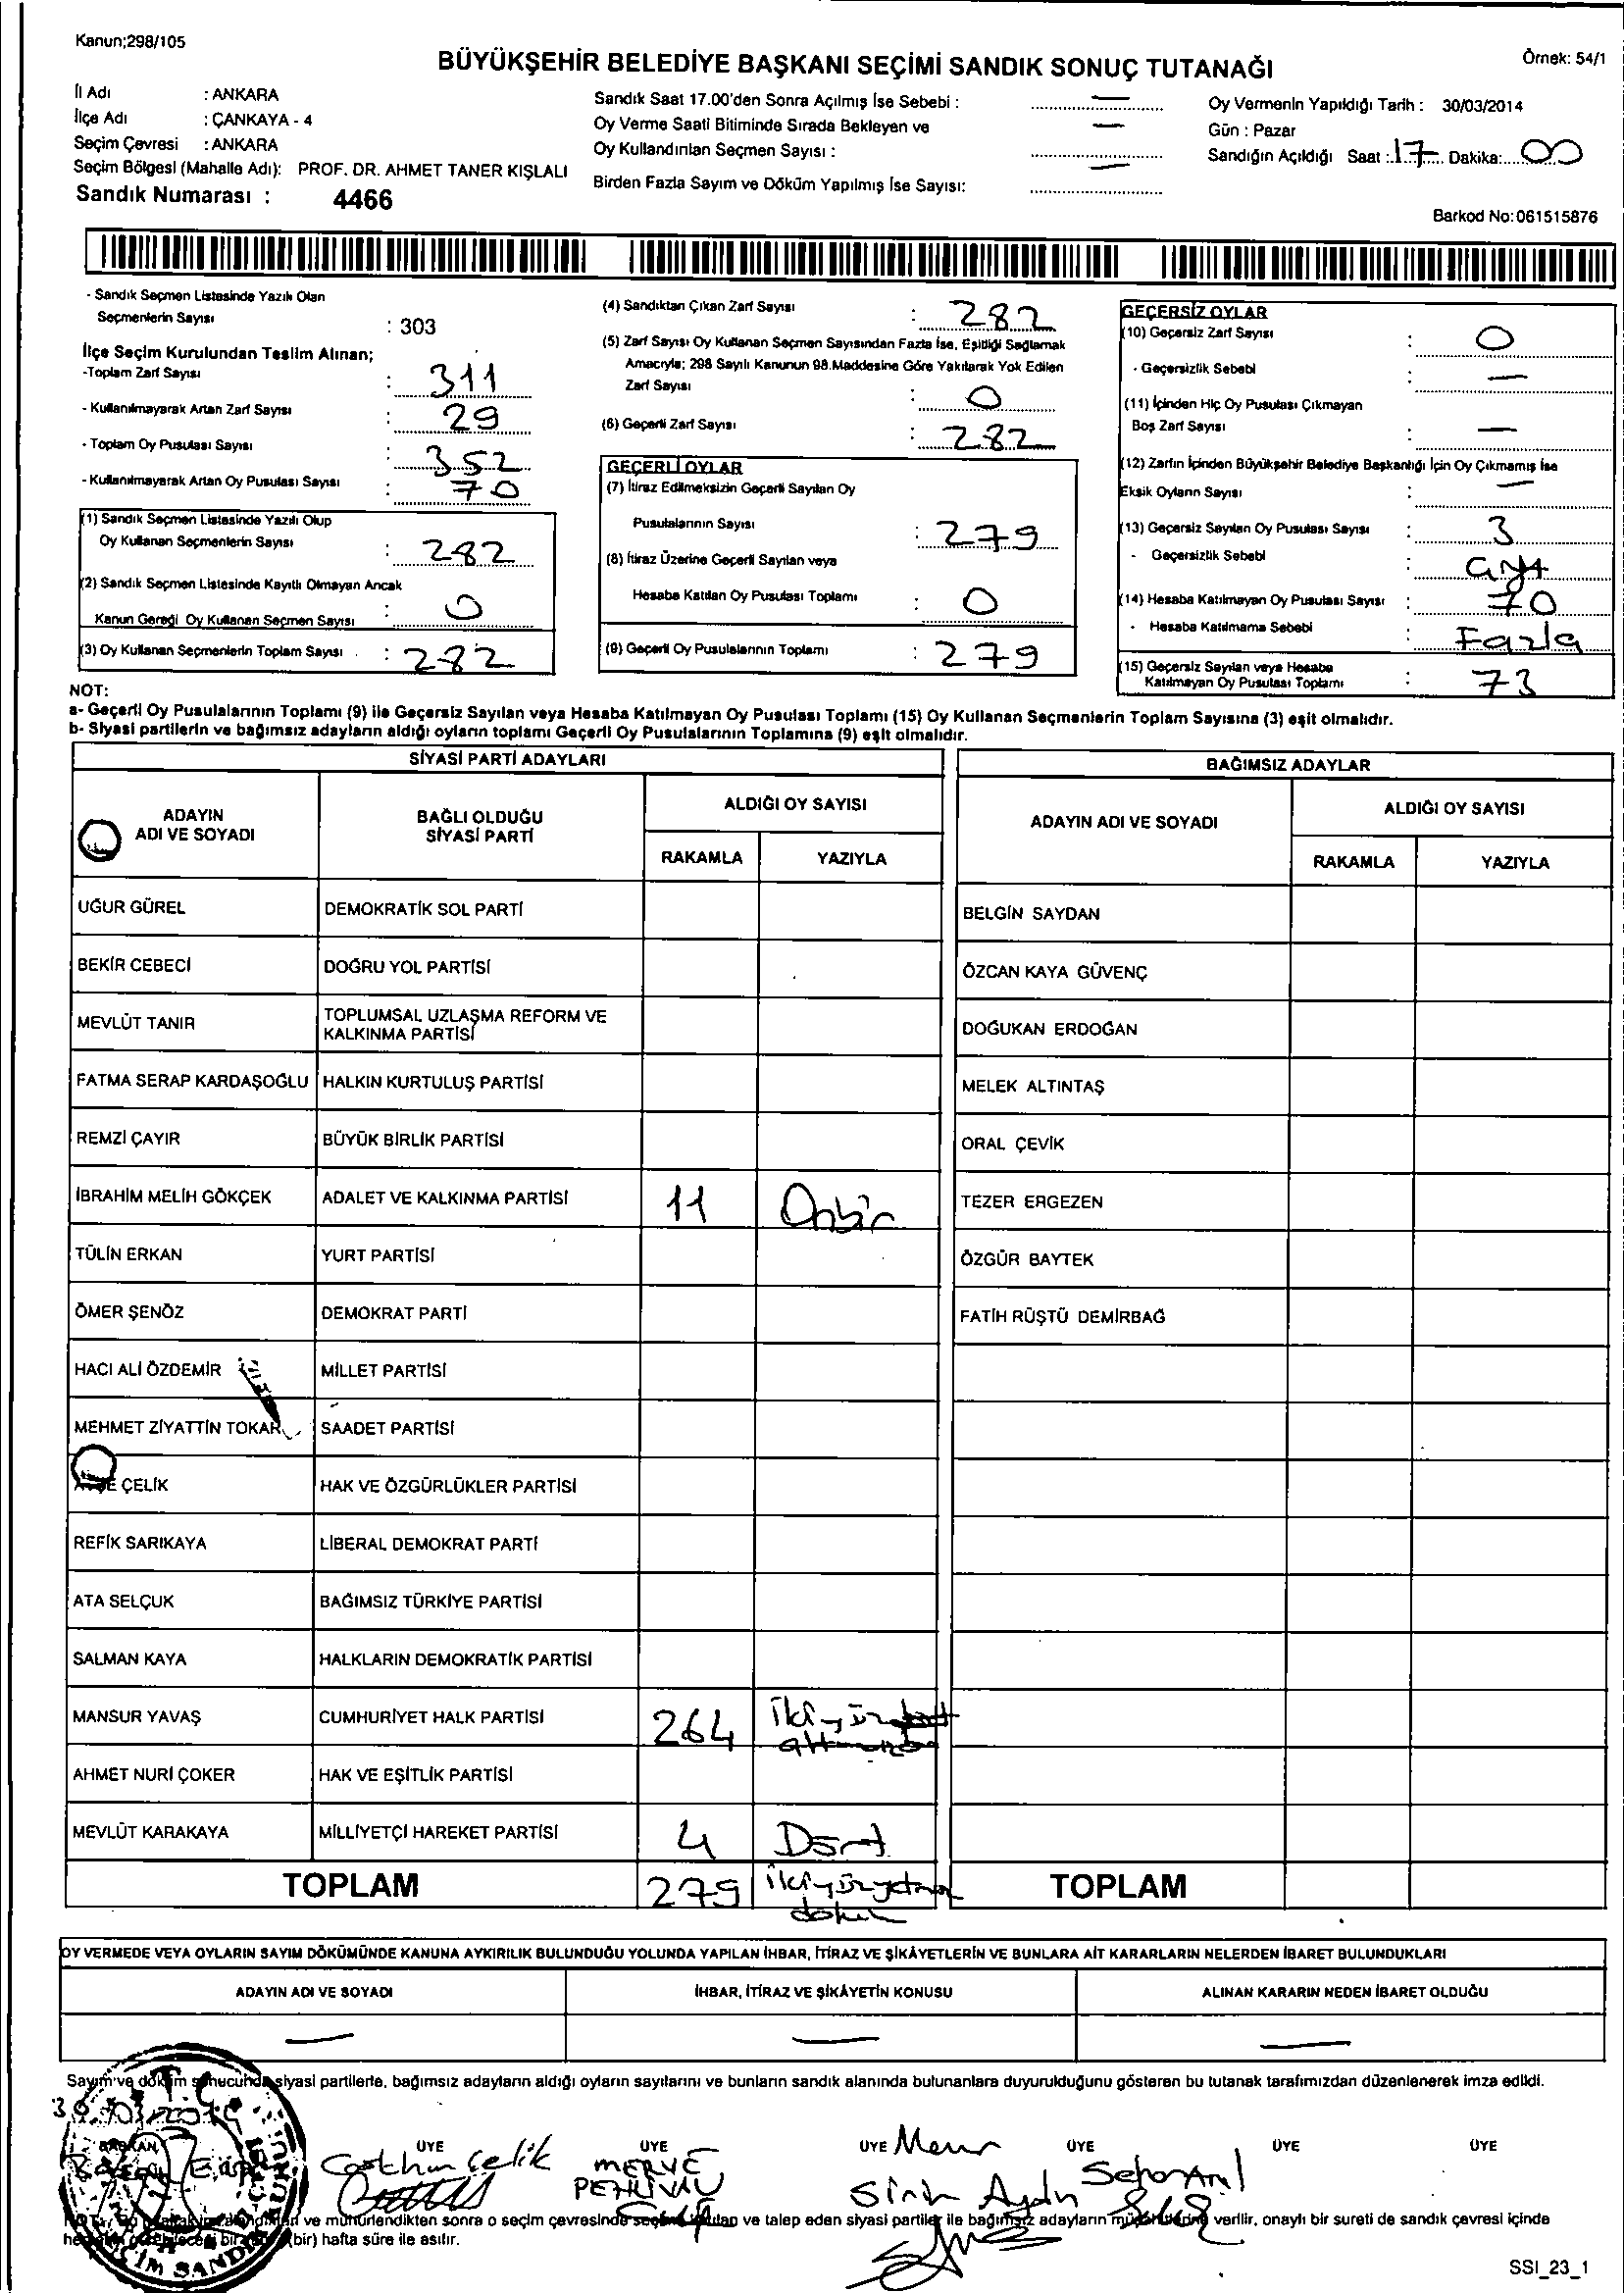 Kanun;298/105
BÜYÜKŞEHİR BELEDİYE BAŞKANI SEÇİMİ SANDIK SONUÇ TUTANAĞI
Örnek: 54/1
İl Adı : ANKARA
İlçe Adı : ÇANKAYA - 4
Seçim Çevresi : ANKARA
Seçim Bölgesi (Mahalle Adı): PROF. DR. AHMET TANER KIŞLALI
Sandık Numarası : 4466
Sandık Saat 17.00'den Sonra Açılmış İse Sebebi : —
Oy Verme Saati Bitiminde Sırada Bekleyen ve
Oy Kullandırılan Seçmen Sayısı : —
Birden Fazla Sayım ve Döküm Yapılmış İse Sayısı: —
Oy Vermenin Yapıldığı Tarih : 30/03/2014
Gün : Pazar
Sandığın Açıldığı Saat : 17 Dakika: 00
Barkod No:061515876
- Sandık Seçmen Listesinde Yazılı Olan
Seçmenlerin Sayısı : 303
İlçe Seçim Kurulundan Teslim Alınan;
-Toplam Zarf Sayısı : 311
- Kullanılmayarak Artan Zarf Sayısı : 29
- Toplam Oy Pusulası Sayısı : 352
- Kullanılmayarak Artan Oy Pusulası Sayısı : 70
(1) Sandık Seçmen Listesinde Yazılı Olup
Oy Kullanan Seçmenlerin Sayısı : 282
(2) Sandık Seçmen Listesinde Kayıtlı Olmayan Ancak
Kanun Gereği Oy Kullanan Seçmen Sayısı : 0
(3) Oy Kullanan Seçmenlerin Toplam Sayısı : 282
(4) Sandıktan Çıkan Zarf Sayısı : 282
(5) Zarf Sayısı Oy Kullanan Seçmen Sayısından Fazla İse, Eşitliği Sağlamak
Amacıyla; 298 Sayılı Kanunun 98.Maddesine Göre Yakılarak Yok Edilen
Zarf Sayısı : 0
(6) Geçerli Zarf Sayısı : 282
GEÇERLİ OYLAR
(7) İtiraz Edilmeksizin Geçerli Sayılan Oy
Pusulalarının Sayısı : 279
(8) İtiraz Üzerine Geçerli Sayılan veya
Hesaba Katılan Oy Pusulası Toplamı : 0
(9) Geçerli Oy Pusulalarının Toplamı : 279
GEÇERSİZ OYLAR
(10) Geçersiz Zarf Sayısı : 0
- Geçersizlik Sebebi : —
(11) İçinden Hiç Oy Pusulası Çıkmayan
Boş Zarf Sayısı : —
(12) Zarfın İçinden Büyükşehir Belediye Başkanlığı İçin Oy Çıkmamış İse
Eksik Oyların Sayısı : —
(13) Geçersiz Sayılan Oy Pusulası Sayısı : 3
- Geçersizlik Sebebi :
(14) Hesaba Katılmayan Oy Pusulası Sayısı : 70
- Hesaba Katılmama Sebebi : Fazla
(15) Geçersiz Sayılan veya Hesaba
Katılmayan Oy Pusulası Toplamı : 73
NOT:
a- Geçerli Oy Pusulalarının Toplamı (9) ile Geçersiz Sayılan veya Hesaba Katılmayan Oy Pusulası Toplamı (15) Oy Kullanan Seçmenlerin Toplam Sayısına (3) eşit olmalıdır.
b- Siyasi partilerin ve bağımsız adayların aldığı oyların toplamı Geçerli Oy Pusulalarının Toplamına (9) eşit olmalıdır.
SİYASİ PARTİ ADAYLARI
ADAYIN ADI VE SOYADI BAĞLI OLDUĞU SİYASİ PARTİ ALDIĞI OY SAYISI
RAKAMLA YAZIYLA
UĞUR GÜREL DEMOKRATİK SOL PARTİ
BEKİR CEBECİ DOĞRU YOL PARTİSİ
MEVLÜT TANIR TOPLUMSAL UZLAŞMA REFORM VE
KALKINMA PARTİSİ
FATMA SERAP KARDAŞOĞLU HALKIN KURTULUŞ PARTİSİ
REMZİ ÇAYIR BÜYÜK BİRLİK PARTİSİ
İBRAHİM MELİH GÖKÇEK ADALET VE KALKINMA PARTİSİ 11 Onbir
TÜLİN ERKAN YURT PARTİSİ
ÖMER ŞENÖZ DEMOKRAT PARTİ
HACI ALİ ÖZDEMİR MİLLET PARTİSİ
MEHMET ZİYATTİN TOKAR SAADET PARTİSİ
ÇELİK HAK VE ÖZGÜRLÜKLER PARTİSİ
REFİK SARIKAYA LİBERAL DEMOKRAT PARTİ
ATA SELÇUK BAĞIMSIZ TÜRKİYE PARTİSİ
SALMAN KAYA HALKLARIN DEMOKRATİK PARTİSİ
MANSUR YAVAŞ CUMHURİYET HALK PARTİSİ 264
AHMET NURİ ÇOKER HAK VE EŞİTLİK PARTİSİ
MEVLÜT KARAKAYA MİLLİYETÇİ HAREKET PARTİSİ 4 Dört
TOPLAM 279
BAĞIMSIZ ADAYLAR
ADAYIN ADI VE SOYADI ALDIĞI OY SAYISI
RAKAMLA YAZIYLA
BELGİN SAYDAN
ÖZCAN KAYA GÜVENÇ
DOĞUKAN ERDOĞAN
MELEK ALTINTAŞ
ORAL ÇEVİK
TEZER ERGEZEN
ÖZGÜR BAYTEK
FATİH RÜŞTÜ DEMİRBAĞ
TOPLAM
OY VERMEDE VEYA OYLARIN SAYIM DÖKÜMÜNDE KANUNA AYKIRILIK BULUNDUĞU YOLUNDA YAPILAN İHBAR, İTİRAZ VE ŞİKÂYETLERİN VE BUNLARA AİT KARARLARIN NELERDEN İBARET BULUNDUKLARI
ADAYIN ADI VE SOYADI İHBAR, İTİRAZ VE ŞİKÂYETİN KONUSU ALINAN KARARIN NEDEN İBARET OLDUĞU
— — —
Sayım ve döküm sonucunda siyasi partilerle, bağımsız adayların aldığı oyların sayılarını ve bunların sandık alanında bulunanlara duyurulduğunu gösteren bu tutanak tarafımızdan düzenlenerek imza edildi.
BAŞKAN ÜYE ÜYE ÜYE ÜYE ÜYE ÜYE
Çelik MERVE
PEHLİVAN Aydın
ve mühürlendikten sonra o seçim çevresinde ve talep eden siyasi partiler ile bağımsız adayların verilir, onaylı bir sureti de sandık çevresi içinde
(bir) hafta süre ile asılır.
SSI_23_1